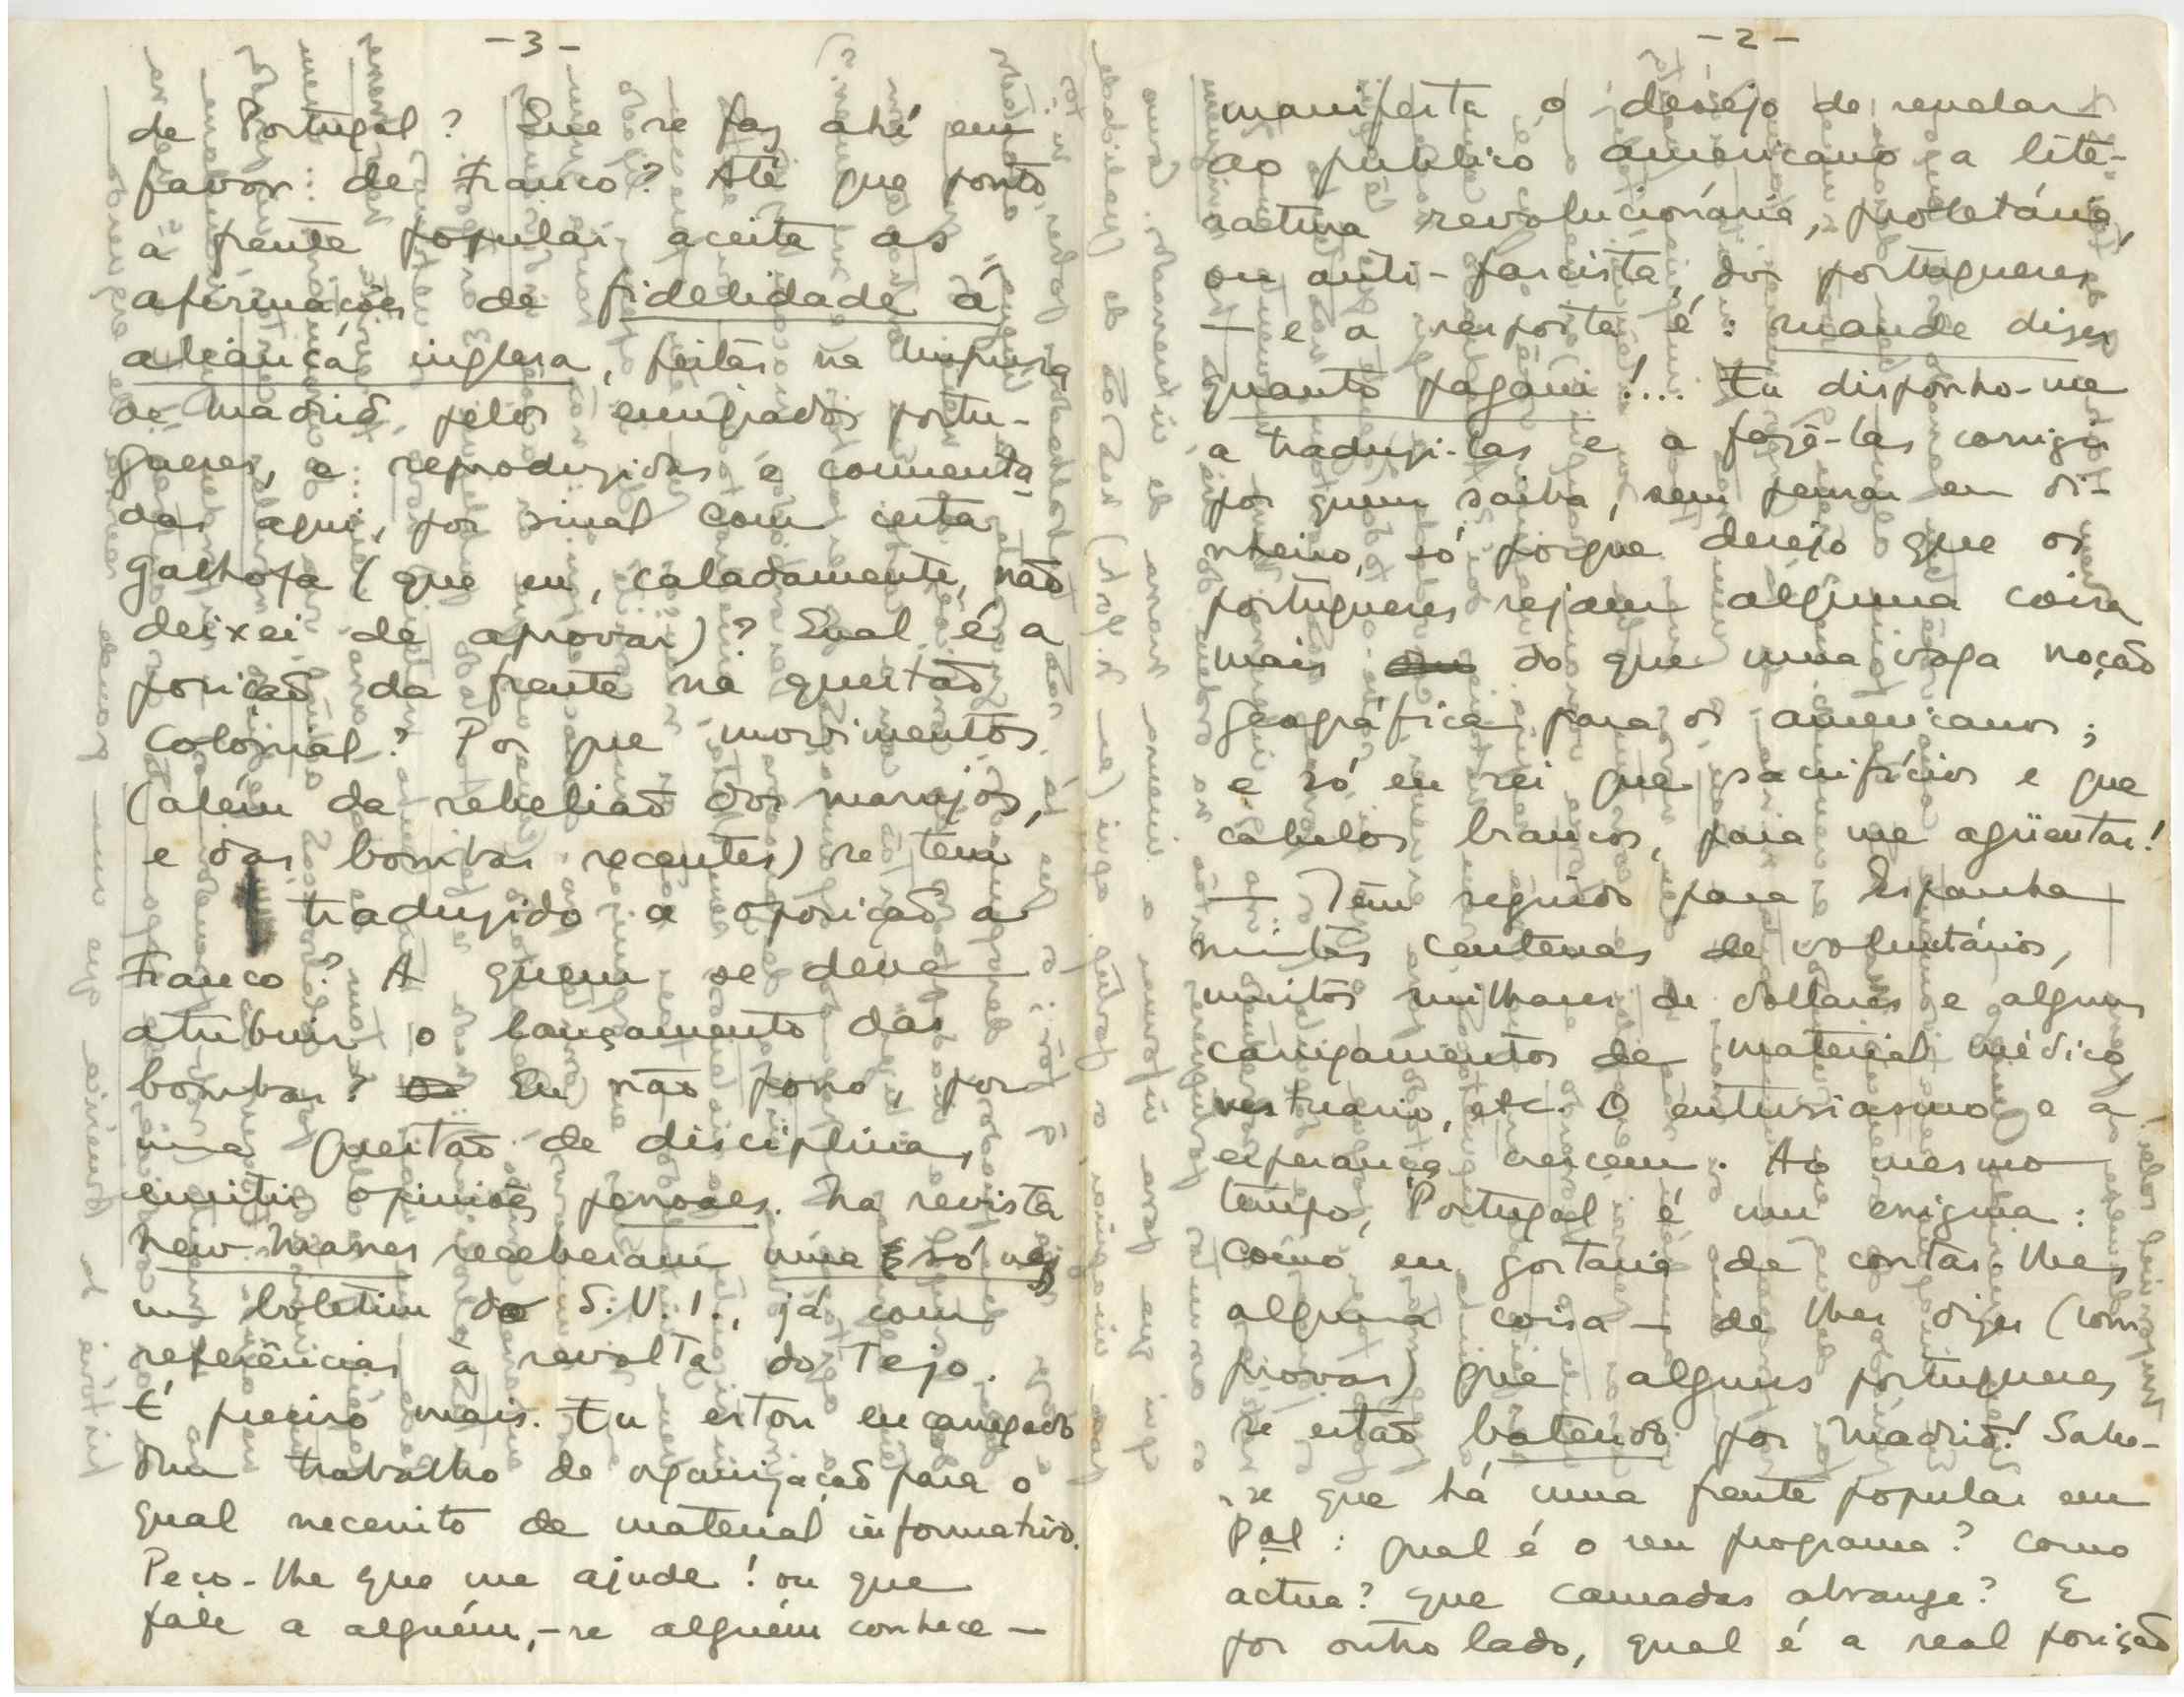 - 2 -
manifesta o desejo de revelar
ao publico americano a lite-
ratura revolucionária, proletária,
ou anti-fascista, dos portugueses
— e a resposta é: mande dizer
quanto pagam!... Eu disponho-me
a traduzi-las e a fazê-las corrigir
por quem saiba, sem pensar em di-
nheiro, só porque desejo que os
portugueses sejam alguma coisa
mais do que uma vaga noção
geográfica para os americanos;
e só eu sei que sacrifícios e que
cabelos brancos, para me agüentar!
— Têm seguido para Espanha
muitas centenas de voluntários,
muitos milhares de dollares e alguns
carregamentos de material médico,
vestuario, etc. O entusiasmo e a
esperança crescem. Ao mesmo
tempo, Portugal é um enigma:
como eu gostaria de contar-lhes
alguma coisa — de lhes dizer (com
provas) que alguns portugueses
se estão batendo por Madrid! Sabe-
-se que há uma frente popular em
Pal: qual é o seu programa? Como
actua? Que camadas abrange? E
por outro lado, qual é a real posição
- 3 -
de Portugal? Que se faz ahí em
favor de Franco? Até que ponto
a frente popular aceita as
afirmações de fidelidade á
aliança inglesa, feitas na imprensa
de Madrid pelos emigrados portu-
gueses, e reproduzidas e commenta-
das aqui, por sinal com certa
galhofa (que eu, caladamente, não
deixei de aprovar)? Qual é a
posição da frente na questão
colonial? Por que movimentos
(além da rebelião dos marujos,
e das bombas recentes) se tem
traduzido a oposição a
Franco? A quem se deve
atribuir o lançamento das
bombas? Eu não posso, por
uma questão de disciplina,
emitir opiniões pessoaes. Na revista
New Masses receberam uma só vez
um boletim do S.V.I., já com
referências à revolta do Tejo.
É preciso mais. Eu estou encarregado
dum trabalho de organização para o
qual necessito de material informativo.
Peço-lhe que me ajude! ou que
fale a alguém, - se alguém conhece —